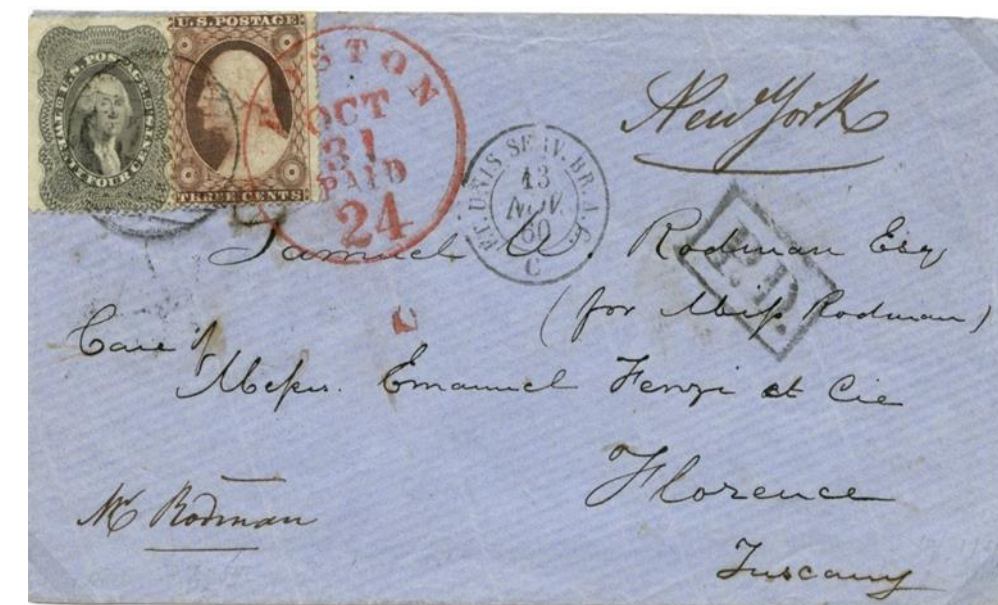 U.S. POSTAGE
TWENTY FOUR CENTS
U.S. POSTAGE
THREE CENTS
BOSTON
OCT
31
PAID
24
ET. UNIS SERV. BR. A. C.
13
NOV.
60
C
New York
P.D.
Samuel W. Rodman Esq
(for Miss Rodman)
Care of
Messrs. Emanuel Fenzi et Cie
Florence
Tuscany
Mr Rodman